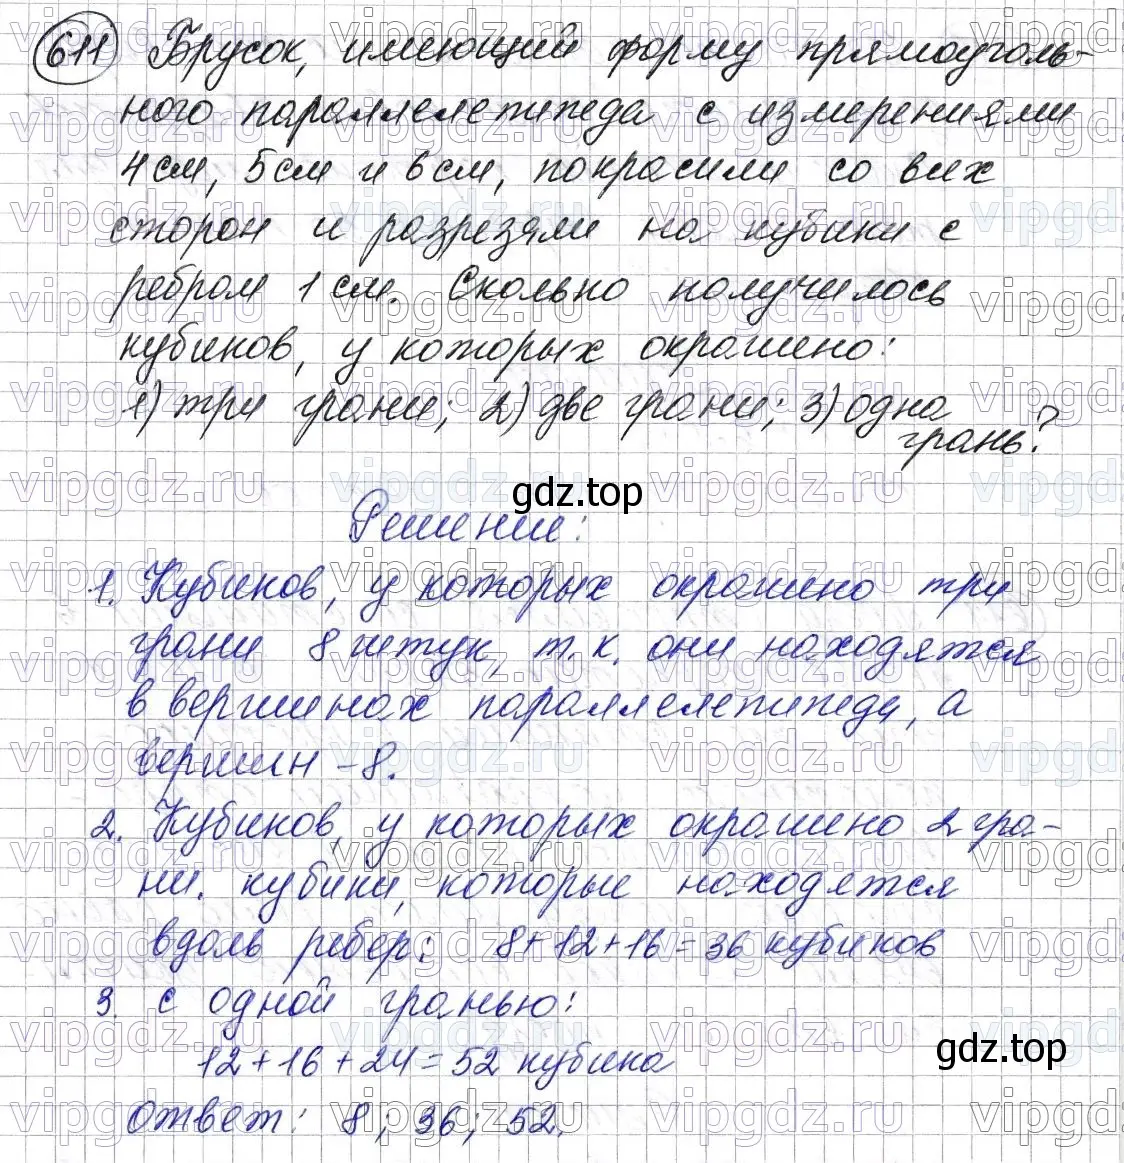 611 Брусок, имеющий форму прямоуголь-
ного параллелепипеда с измерениями
4 см, 5 см и 6 см, покрасили со всех
сторон и разрезали на кубики с
ребром 1 см. Сколько получилось
кубиков, у которых окрашено:
1) три грани; 2) две грани; 3) одна
грань?
gdz.top
Решение:
1. Кубиков, у которых окрашено три
грани 8 штук, т.к. они находятся
в вершинах параллелепипеда, а
вершин – 8.
2. Кубиков, у которых окрашено 2 гра-
ни. кубики, которые находятся
вдоль ребер: 8+12+16=36 кубиков
3. с одной гранью:
12+16+24=52 кубика
gdz.top
Ответ: 8; 36; 52.